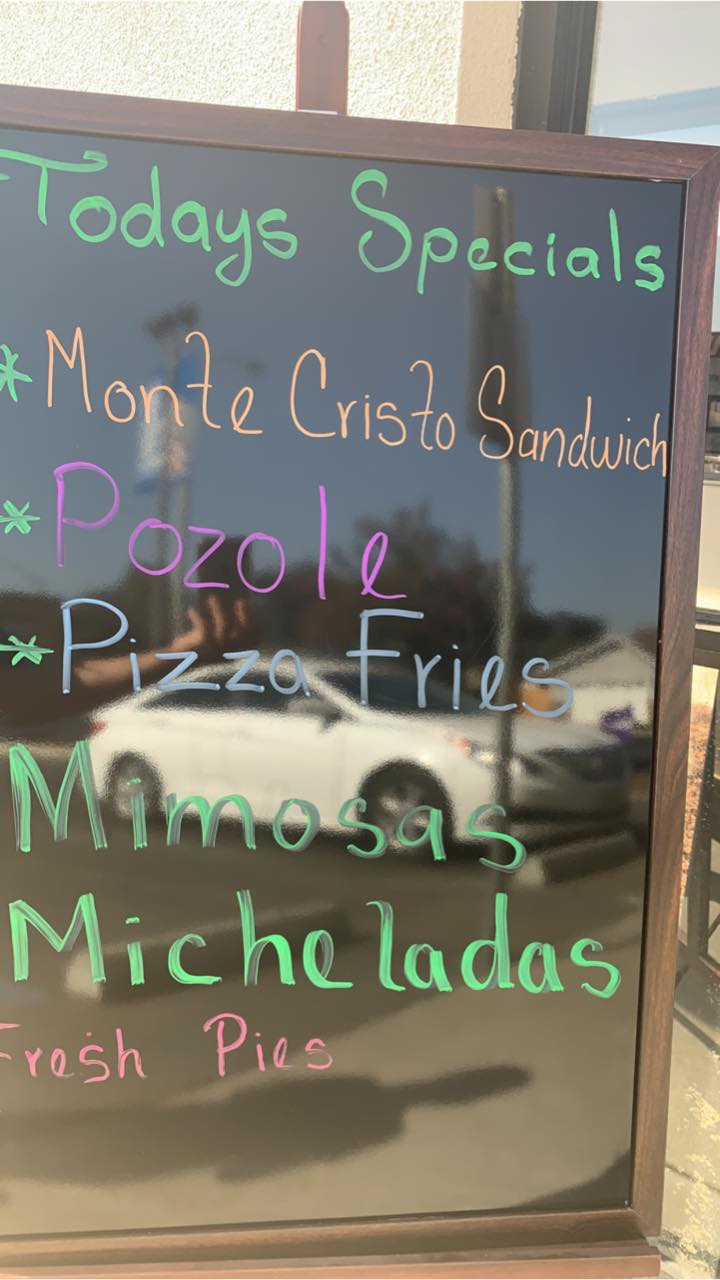 Todays Specials
* Monte Cristo Sandwich
* Pozole
* Pizza Fries
Mimosas
Micheladas
Fresh Pies